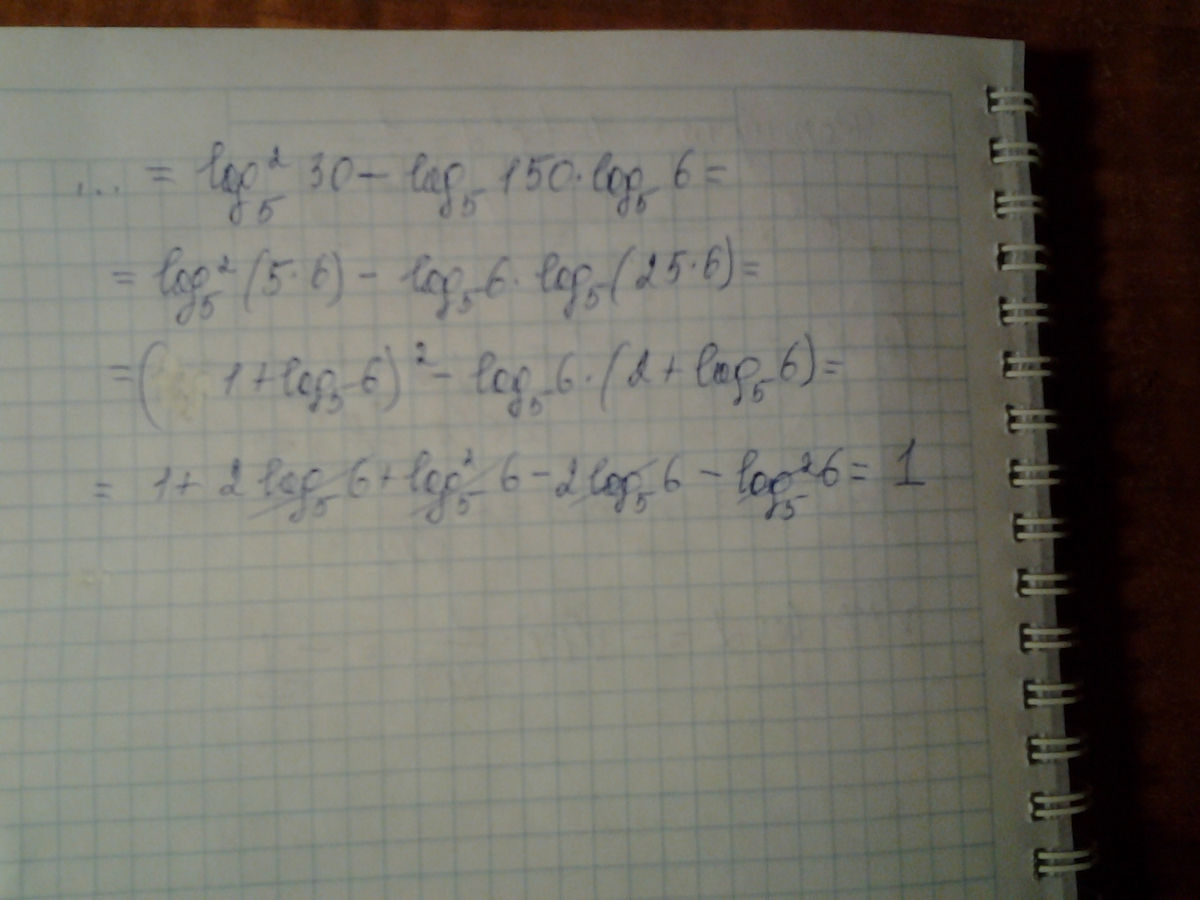 ... = log₅² 30 − log₅ 150 · log₅ 6 =
= log₅² (5 · 6) − log₅ 6 · log₅ (25 · 6) =
= (1 + log₅ 6)² − log₅ 6 · (2 + log₅ 6) =
= 1 + 2 log₅ 6 + log₅² 6 − 2 log₅ 6 − log₅² 6 = 1